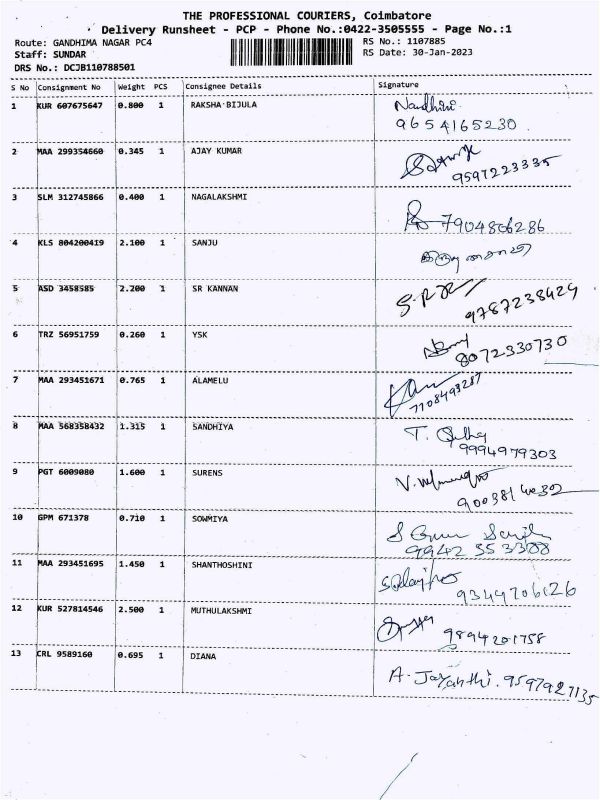 THE PROFESSIONAL COURIERS, Coimbatore
Delivery Runsheet - PCP - Phone No.:0422-3505555 - Page No.:1
Route: GANDHIMA NAGAR PC4 RS No.: 1107885
Staff: SUNDAR RS Date: 30-Jan-2023
DRS No.: DCJB110788501
S No Consignment No Weight PCS Consignee Details Signature
1 KUR 607675647 0.800 1 RAKSHA BIJULA Nandhini
9654165230
2 MAA 299354660 0.345 1 AJAY KUMAR
9597223335
3 SLM 312745866 0.400 1 NAGALAKSHMI
7904806286
4 KLS 804200419 2.100 1 SANJU
5 ASD 3458585 2.200 1 SR KANNAN S.R
9787238429
6 TRZ 56951759 0.260 1 YSK
8072330730
7 MAA 293451671 0.765 1 ALAMELU
7708493287
8 MAA 568358432 1.315 1 SANDHIYA T.
9994979303
9 PGT 6009080 1.600 1 SURENS V.
9003814032
10 GPM 671378 0.710 1 SOWMIYA S
9942 553388
11 MAA 293451695 1.450 1 SHANTHOSHINI
9349706126
12 KUR 527814546 2.500 1 MUTHULAKSHMI
9894201758
13 CRL 9589160 0.695 1 DIANA A. Jayanthi. 9597927135